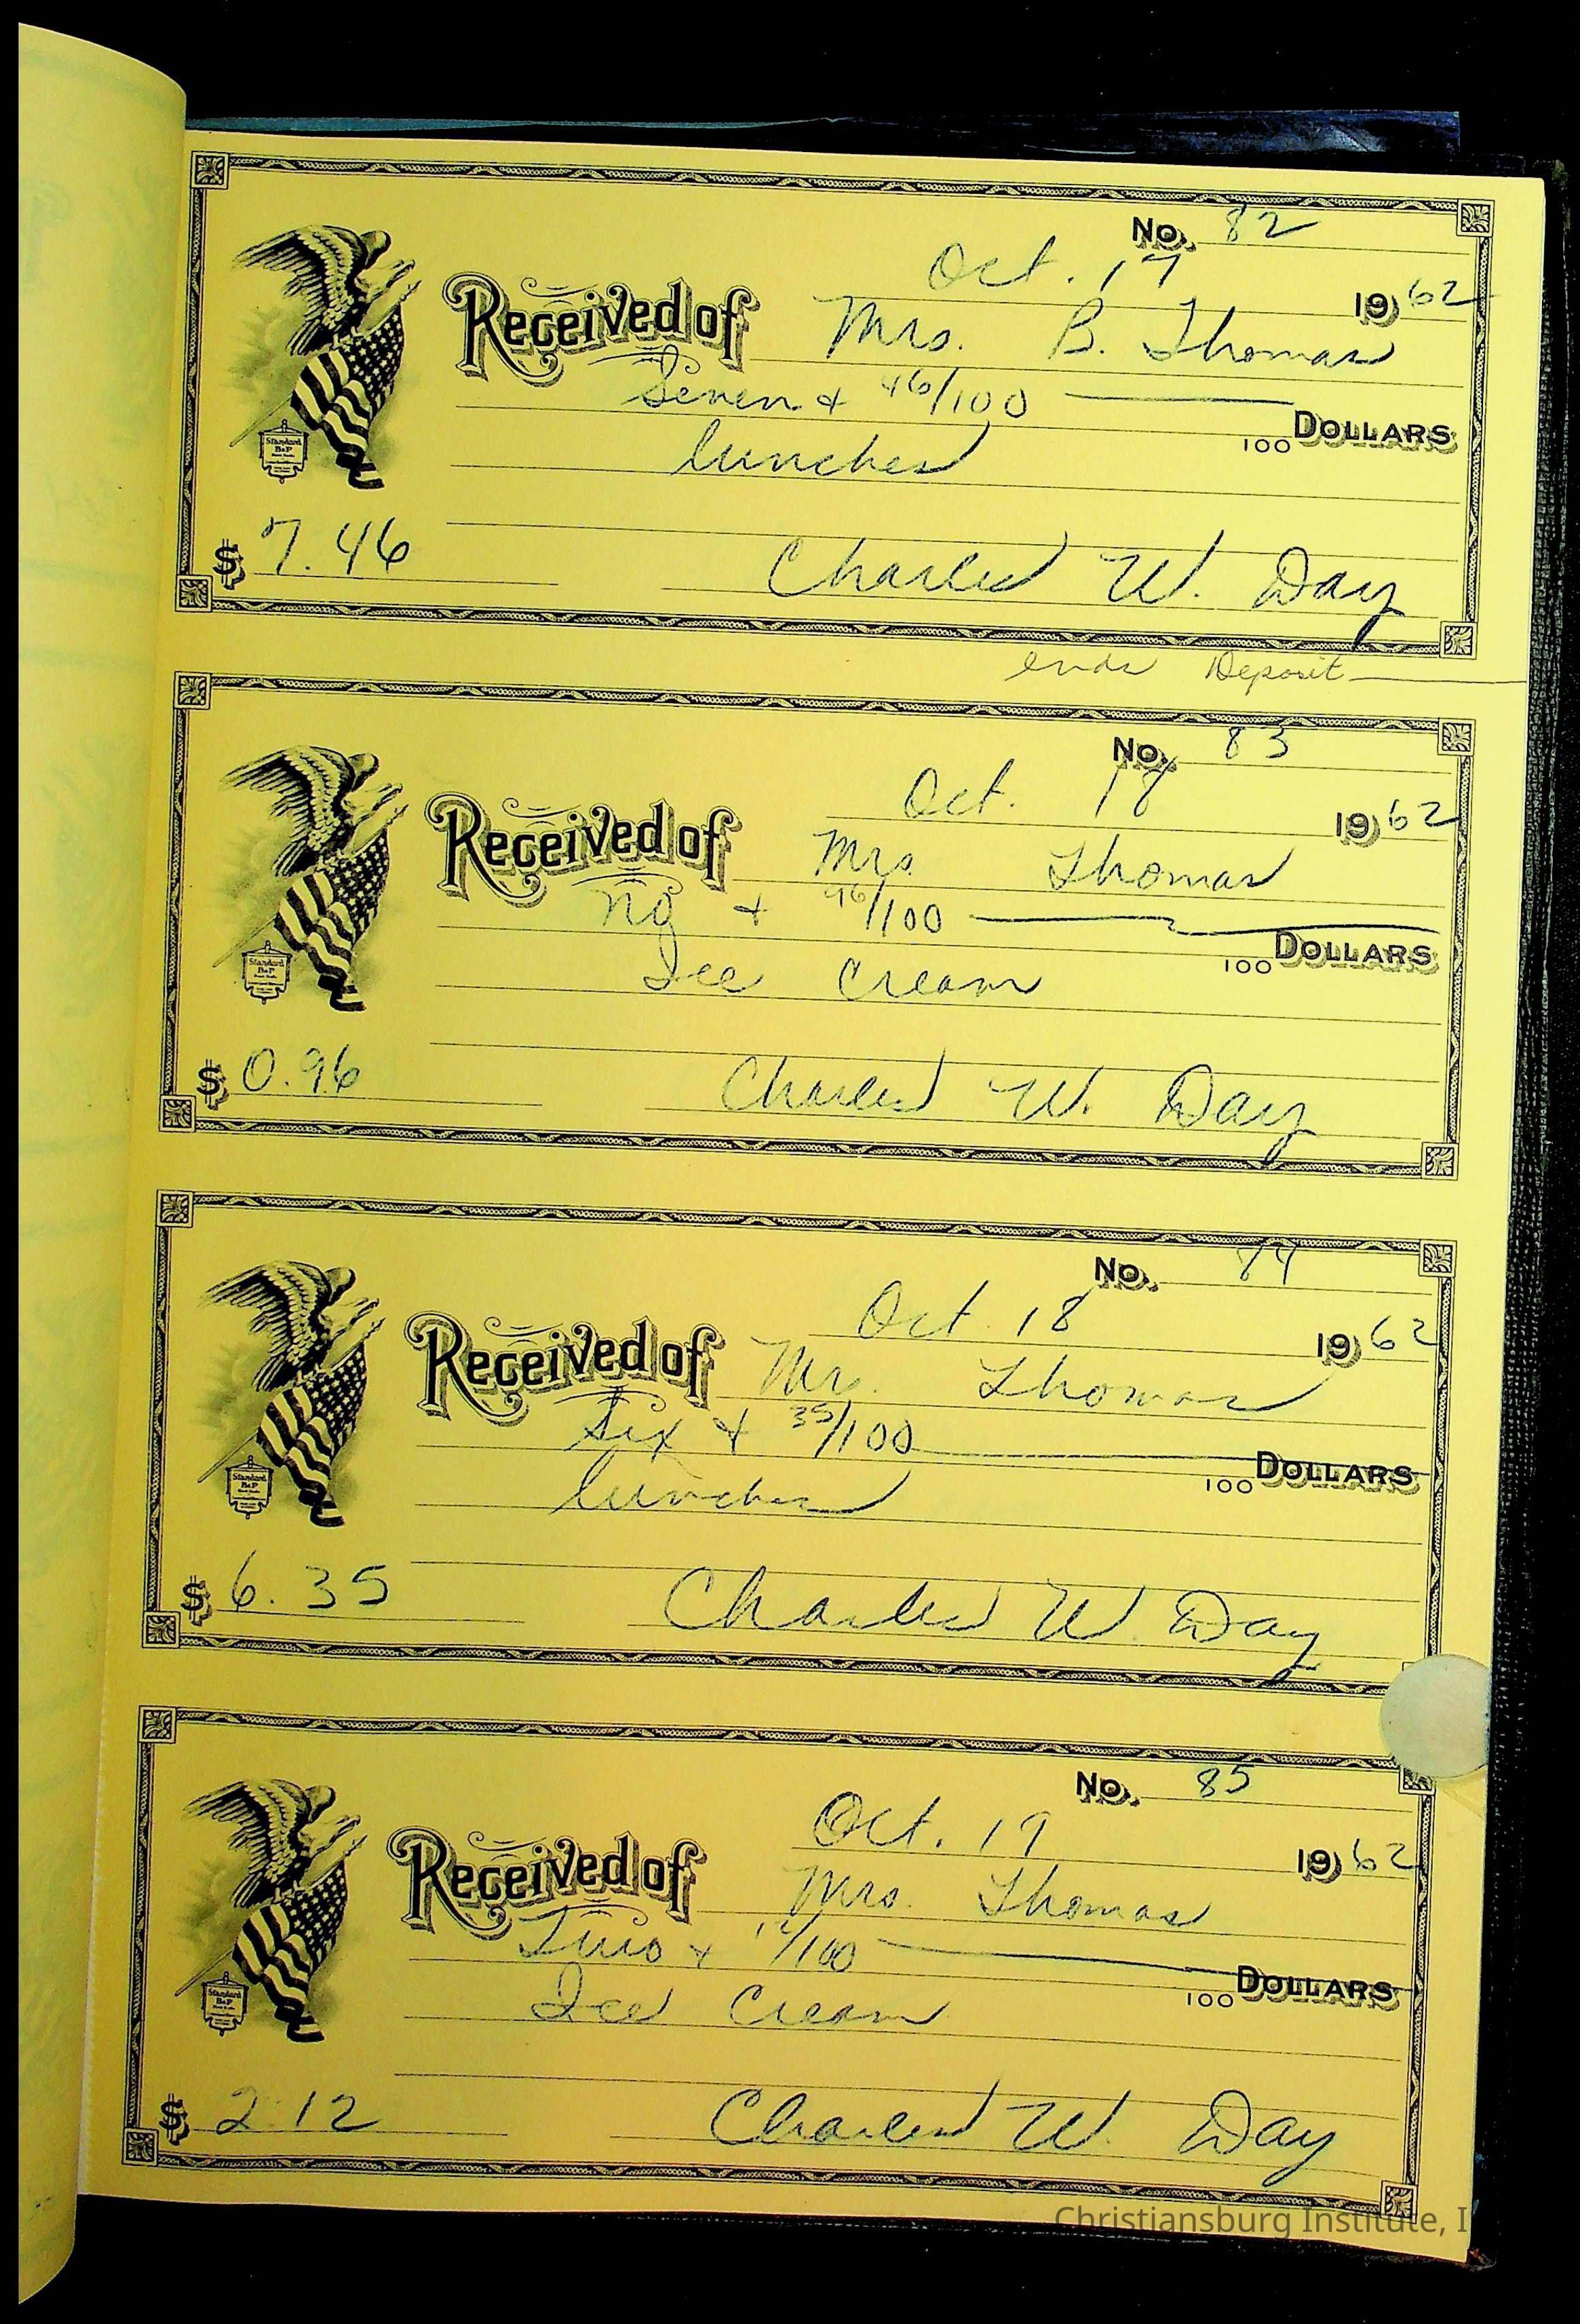 No. 82
Oct. 17 1962
Received of Mrs. B. Thomas
Seven + 46/100 100 DOLLARS
lunches
$ 7.46 Charles W. Day
Standard
B&P
ends Deposit
No. 83
Oct. 18 1962
Received of Mrs Thomas
no + 96/100 100 DOLLARS
Ice Cream
$ 0.96 Charles W. Day
Standard
B&P
No. 84
Oct 18 1962
Received of Mrs. Thomas
Six + 35/100 100 DOLLARS
lunches
$ 6.35 Charles W. Day
Standard
B&P
No. 85
Oct. 19 1962
Received of Mrs. Thomas
Two + 12/100 100 DOLLARS
Ice Cream
$ 2.12 Charles W. Day
Standard
B&P
Christiansburg Institute, I